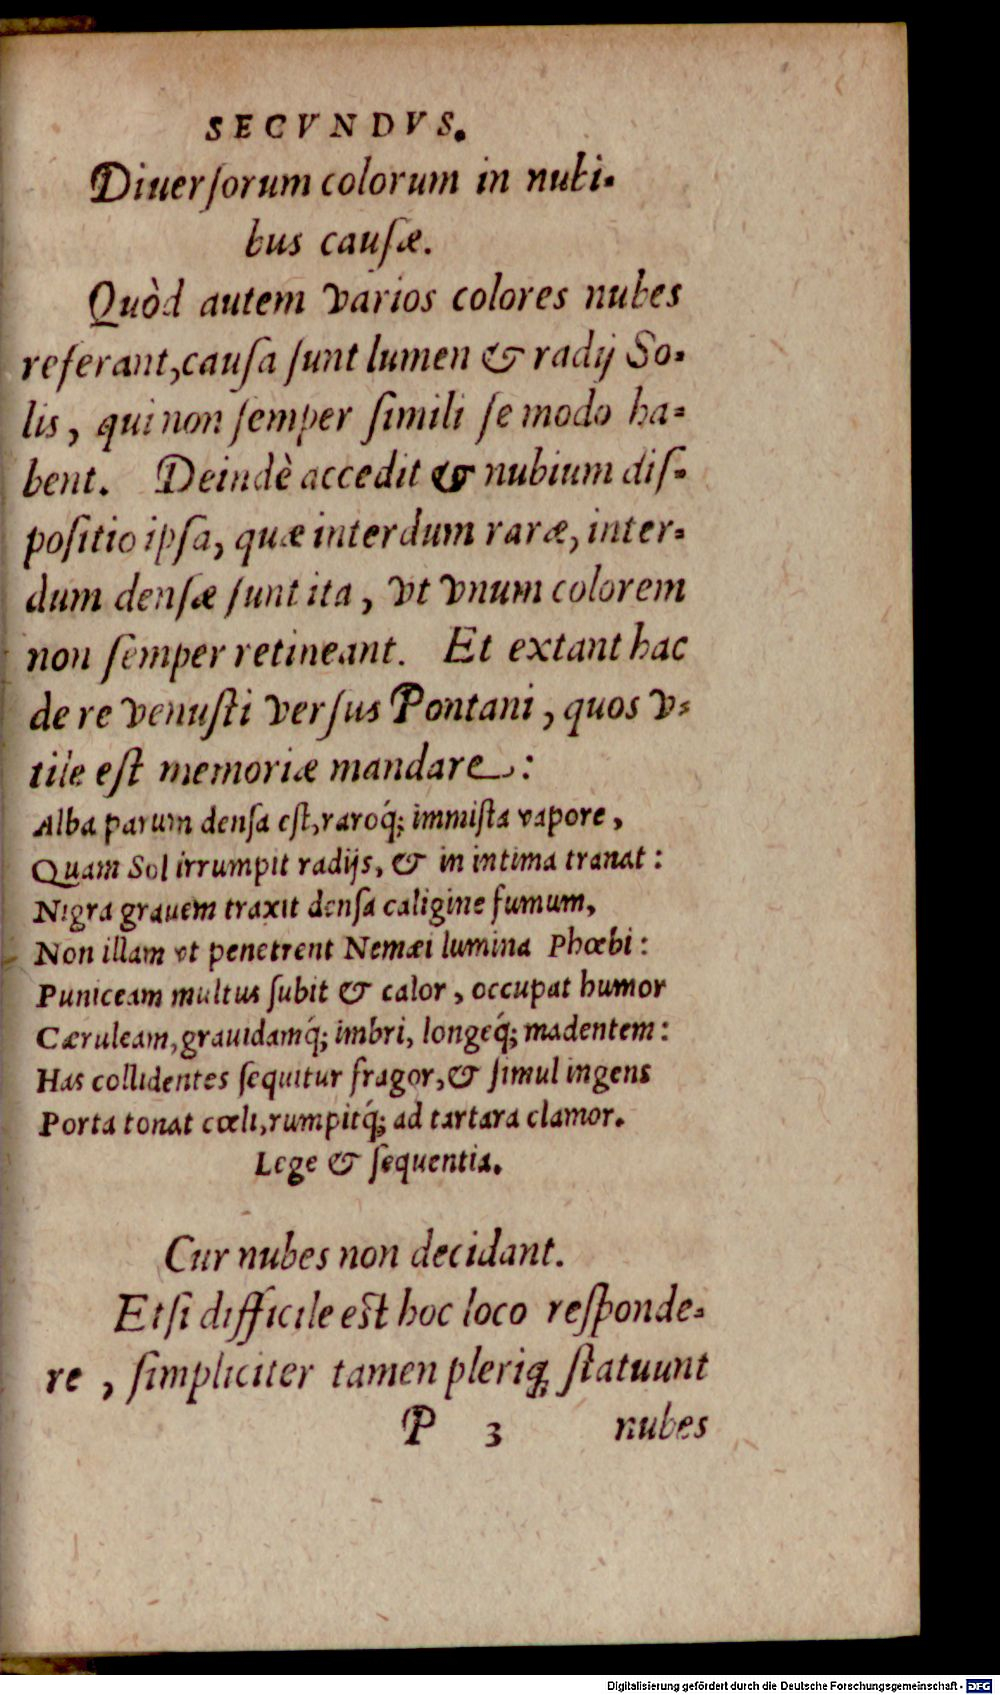 SECVNDVS.
Diuerſorum colorum in nubi-
bus cauſæ.
Quòd autem varios colores nubes
referant, cauſa ſunt lumen & radij So-
lis, qui non ſemper ſimili ſe modo ha-
bent. Deindè accedit & nubium diſ-
poſitio ipſa, quæ interdum raræ, inter-
dum denſæ ſunt ita, vt vnum colorem
non ſemper retineant. Et extant hac
de re venuſti verſus Pontani, quos v-
tile eſt memoriæ mandare:
Alba parum denſa eſt, raroq́; immiſta vapore,
Quam Sol irrumpit radijs, & in intima tranat:
Nigra grauem traxit denſa caligine fumum,
Non illam vt penetrent Nemæi lumina Phœbi:
Puniceam multus ſubit & calor, occupat humor
Cæruleam, grauidamq́; imbri, longeq́; madentem:
Has collidentes ſequitur fragor, & ſimul ingens
Porta tonat cœli, rumpitq́; ad tartara clamor.
Lege & ſequentia.
Cur nubes non decidant.
Etſi difficile eſt hoc loco reſponde-
re, ſimpliciter tamen pleriq; ſtatuunt
P 3 nubes
Digitalisierung gefördert durch die Deutsche Forschungsgemeinschaft - DFG